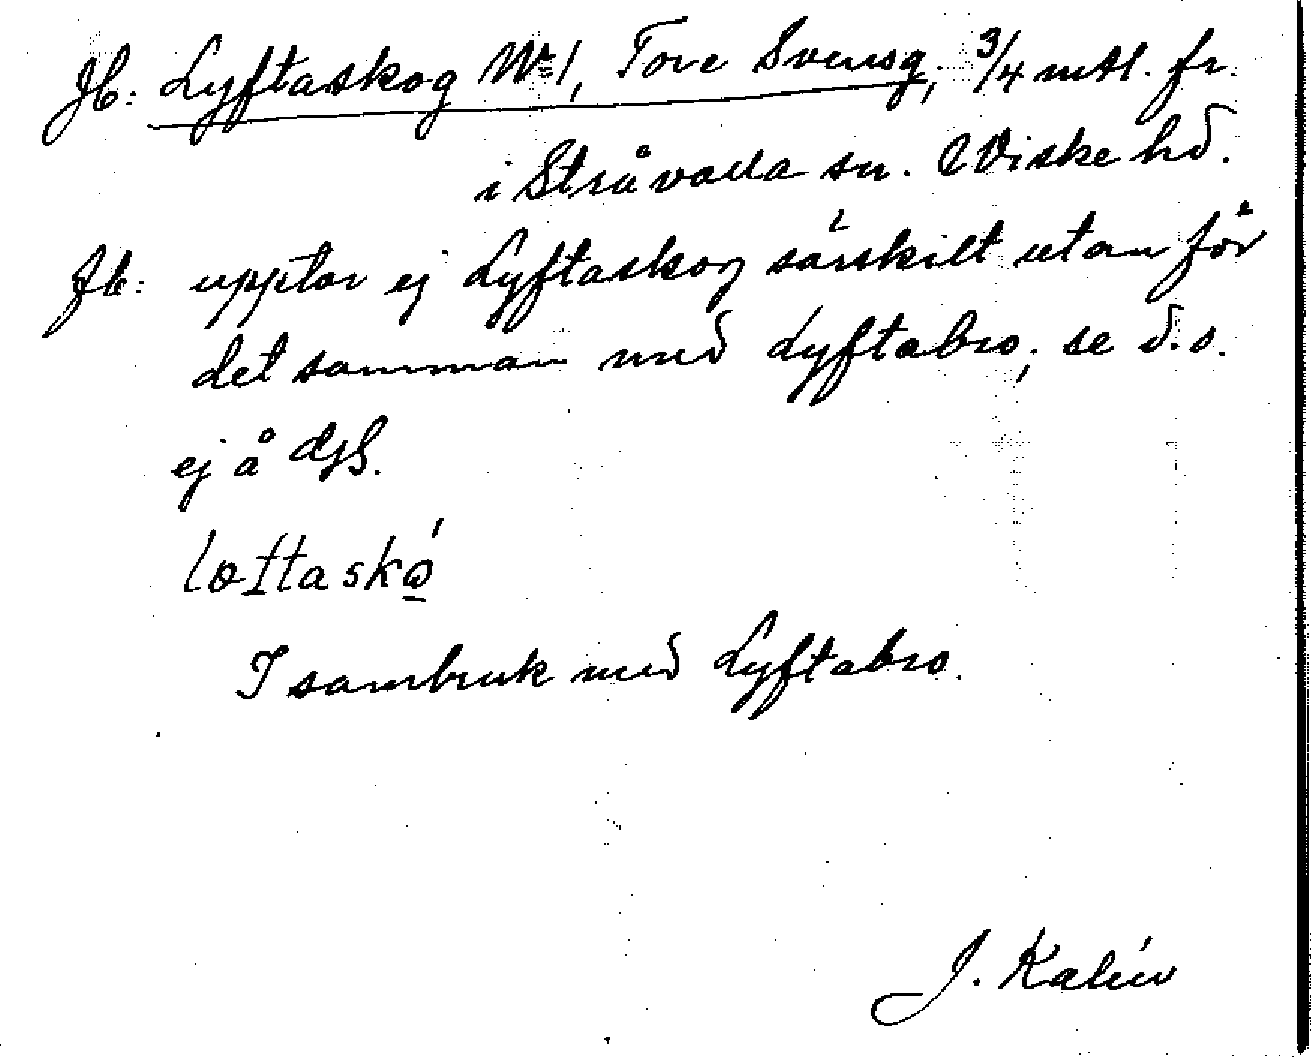 Jb: Lyftaskog No 1, Tore Svensg, 3/4 mtl. fr.
i Stråvalla sn. Viske hd.
Jb: upptar ej Lyftaskog särskilt utan för
det samman med Lyftabro; se d. o.
ej å
I sambruk med Lyftabro.
J. Kalén